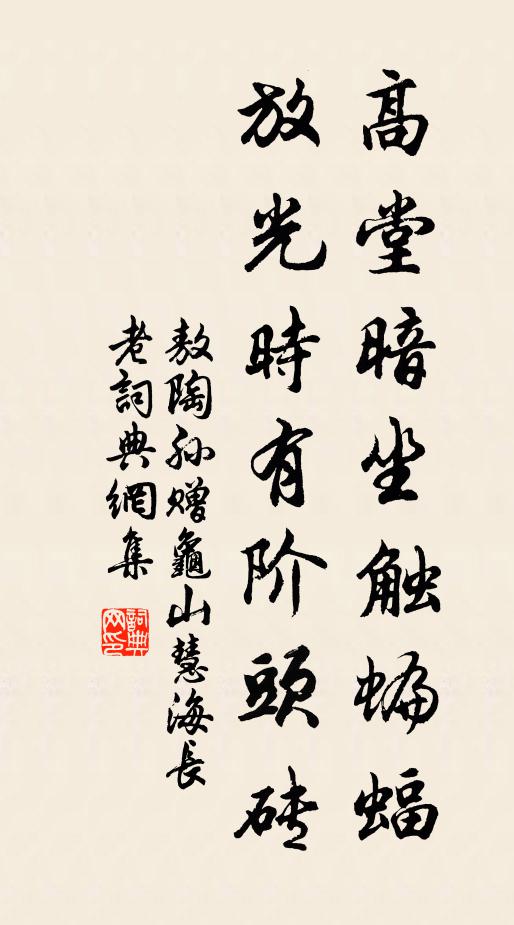 高堂暗坐触蝙蝠
放光時有阶頭砖
敖陶孙赠龜山慧海長
老詞典網集
詞典
网印